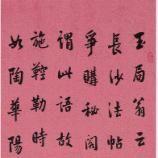 玉局翁云
長沙法帖
爭購秘閣
謂此語故
施鞚勒時
如陶華陽